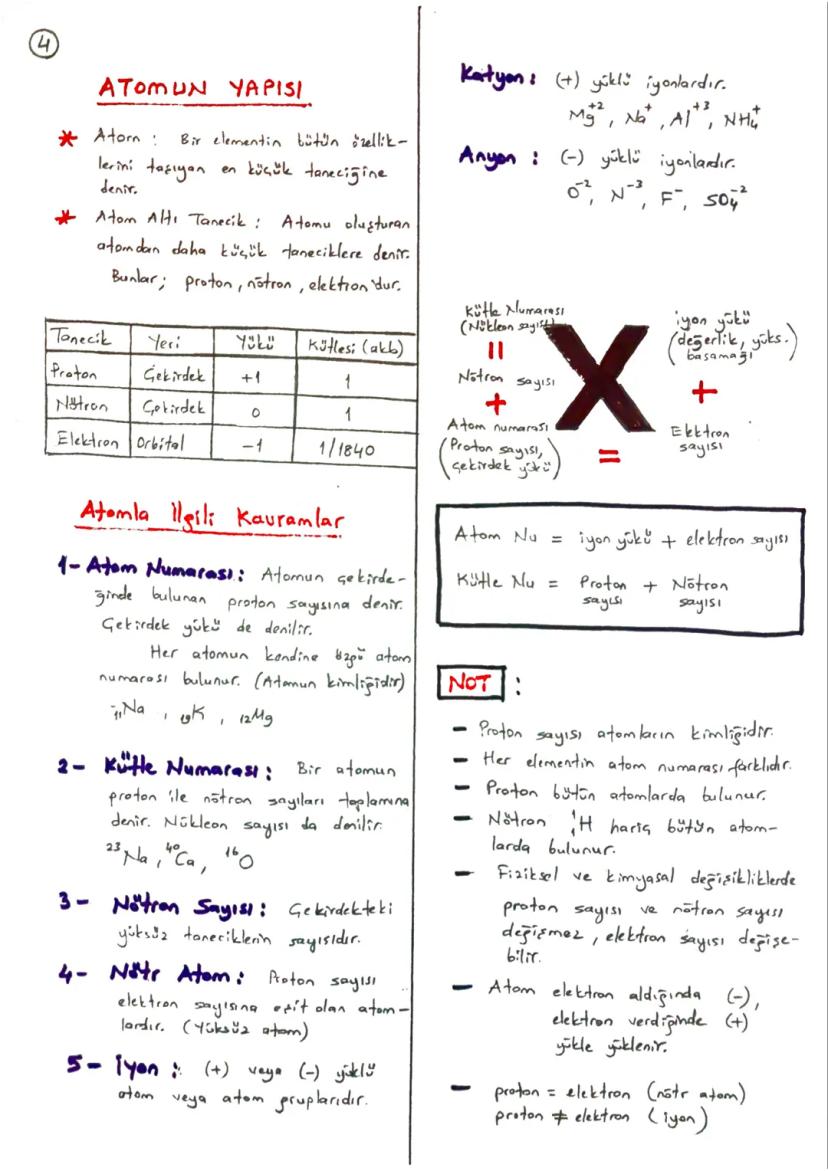 4
ATOMUN YAPISI
* Atom : Bir elementin bütün özellik-
lerini taşıyan en küçük taneciğine
denir.
* Atom Altı Tanecik : Atomu oluşturan
atomdan daha küçük taneciklere denir.
Bunlar; proton, nötron, elektron'dur.
Tanecik Yeri Yükü Kütlesi (akb)
Proton Çekirdek +1 1
Nötron Çekirdek 0 1
Elektron Orbital -1 1/1840
Atomla İlgili Kavramlar
1- Atom Numarası : Atomun çekirde-
ğinde bulunan proton sayısına denir.
Çekirdek yükü de denilir.
Her atomun kendine özgü atom
numarası bulunur. (Atomun kimliğidir)
₁₁Na , ₁₉K , ₁₂Mg
2- Kütle Numarası : Bir atomun
proton ile nötron sayıları toplamına
denir. Nükleon sayısı da denilir.
²³Na , ⁴⁰Ca , ¹⁶O
3- Nötron Sayısı : Çekirdekteki
yüksüz taneciklerin sayısıdır.
4- Nötr Atom : Proton sayısı
elektron sayısına eşit olan atom-
lardır. (Yüksüz atom)
5- İyon : (+) veya (-) yüklü
atom veya atom gruplarıdır.
Katyon : (+) yüklü iyonlardır.
Mg⁺² , Na⁺ , Al⁺³ , NH₄⁺
Anyon : (-) yüklü iyonlardır.
O⁻² , N⁻³ , F⁻ , SO₄⁻²
Kütle Numarası
(Nükleon sayısı)
=
Nötron sayısı
+
Atom numarası
(Proton sayısı,
çekirdek yükü)
=
X
iyon yükü
(değerlik, yüks.
basamağı)
+
Elektron
sayısı
Atom Nu = iyon yükü + elektron sayısı
Kütle Nu = Proton + Nötron
sayısı sayısı
NOT :
- Proton sayısı atomların kimliğidir.
- Her elementin atom numarası farklıdır.
- Proton bütün atomlarda bulunur.
- Nötron ¹₁H hariç bütün atom-
larda bulunur.
- Fiziksel ve kimyasal değişikliklerde
proton sayısı ve nötron sayısı
değişmez, elektron sayısı değişe-
bilir.
- Atom elektron aldığında (-),
elektron verdiğinde (+)
yükle yüklenir.
- proton = elektron (nötr atom)
proton ≠ elektron (iyon)